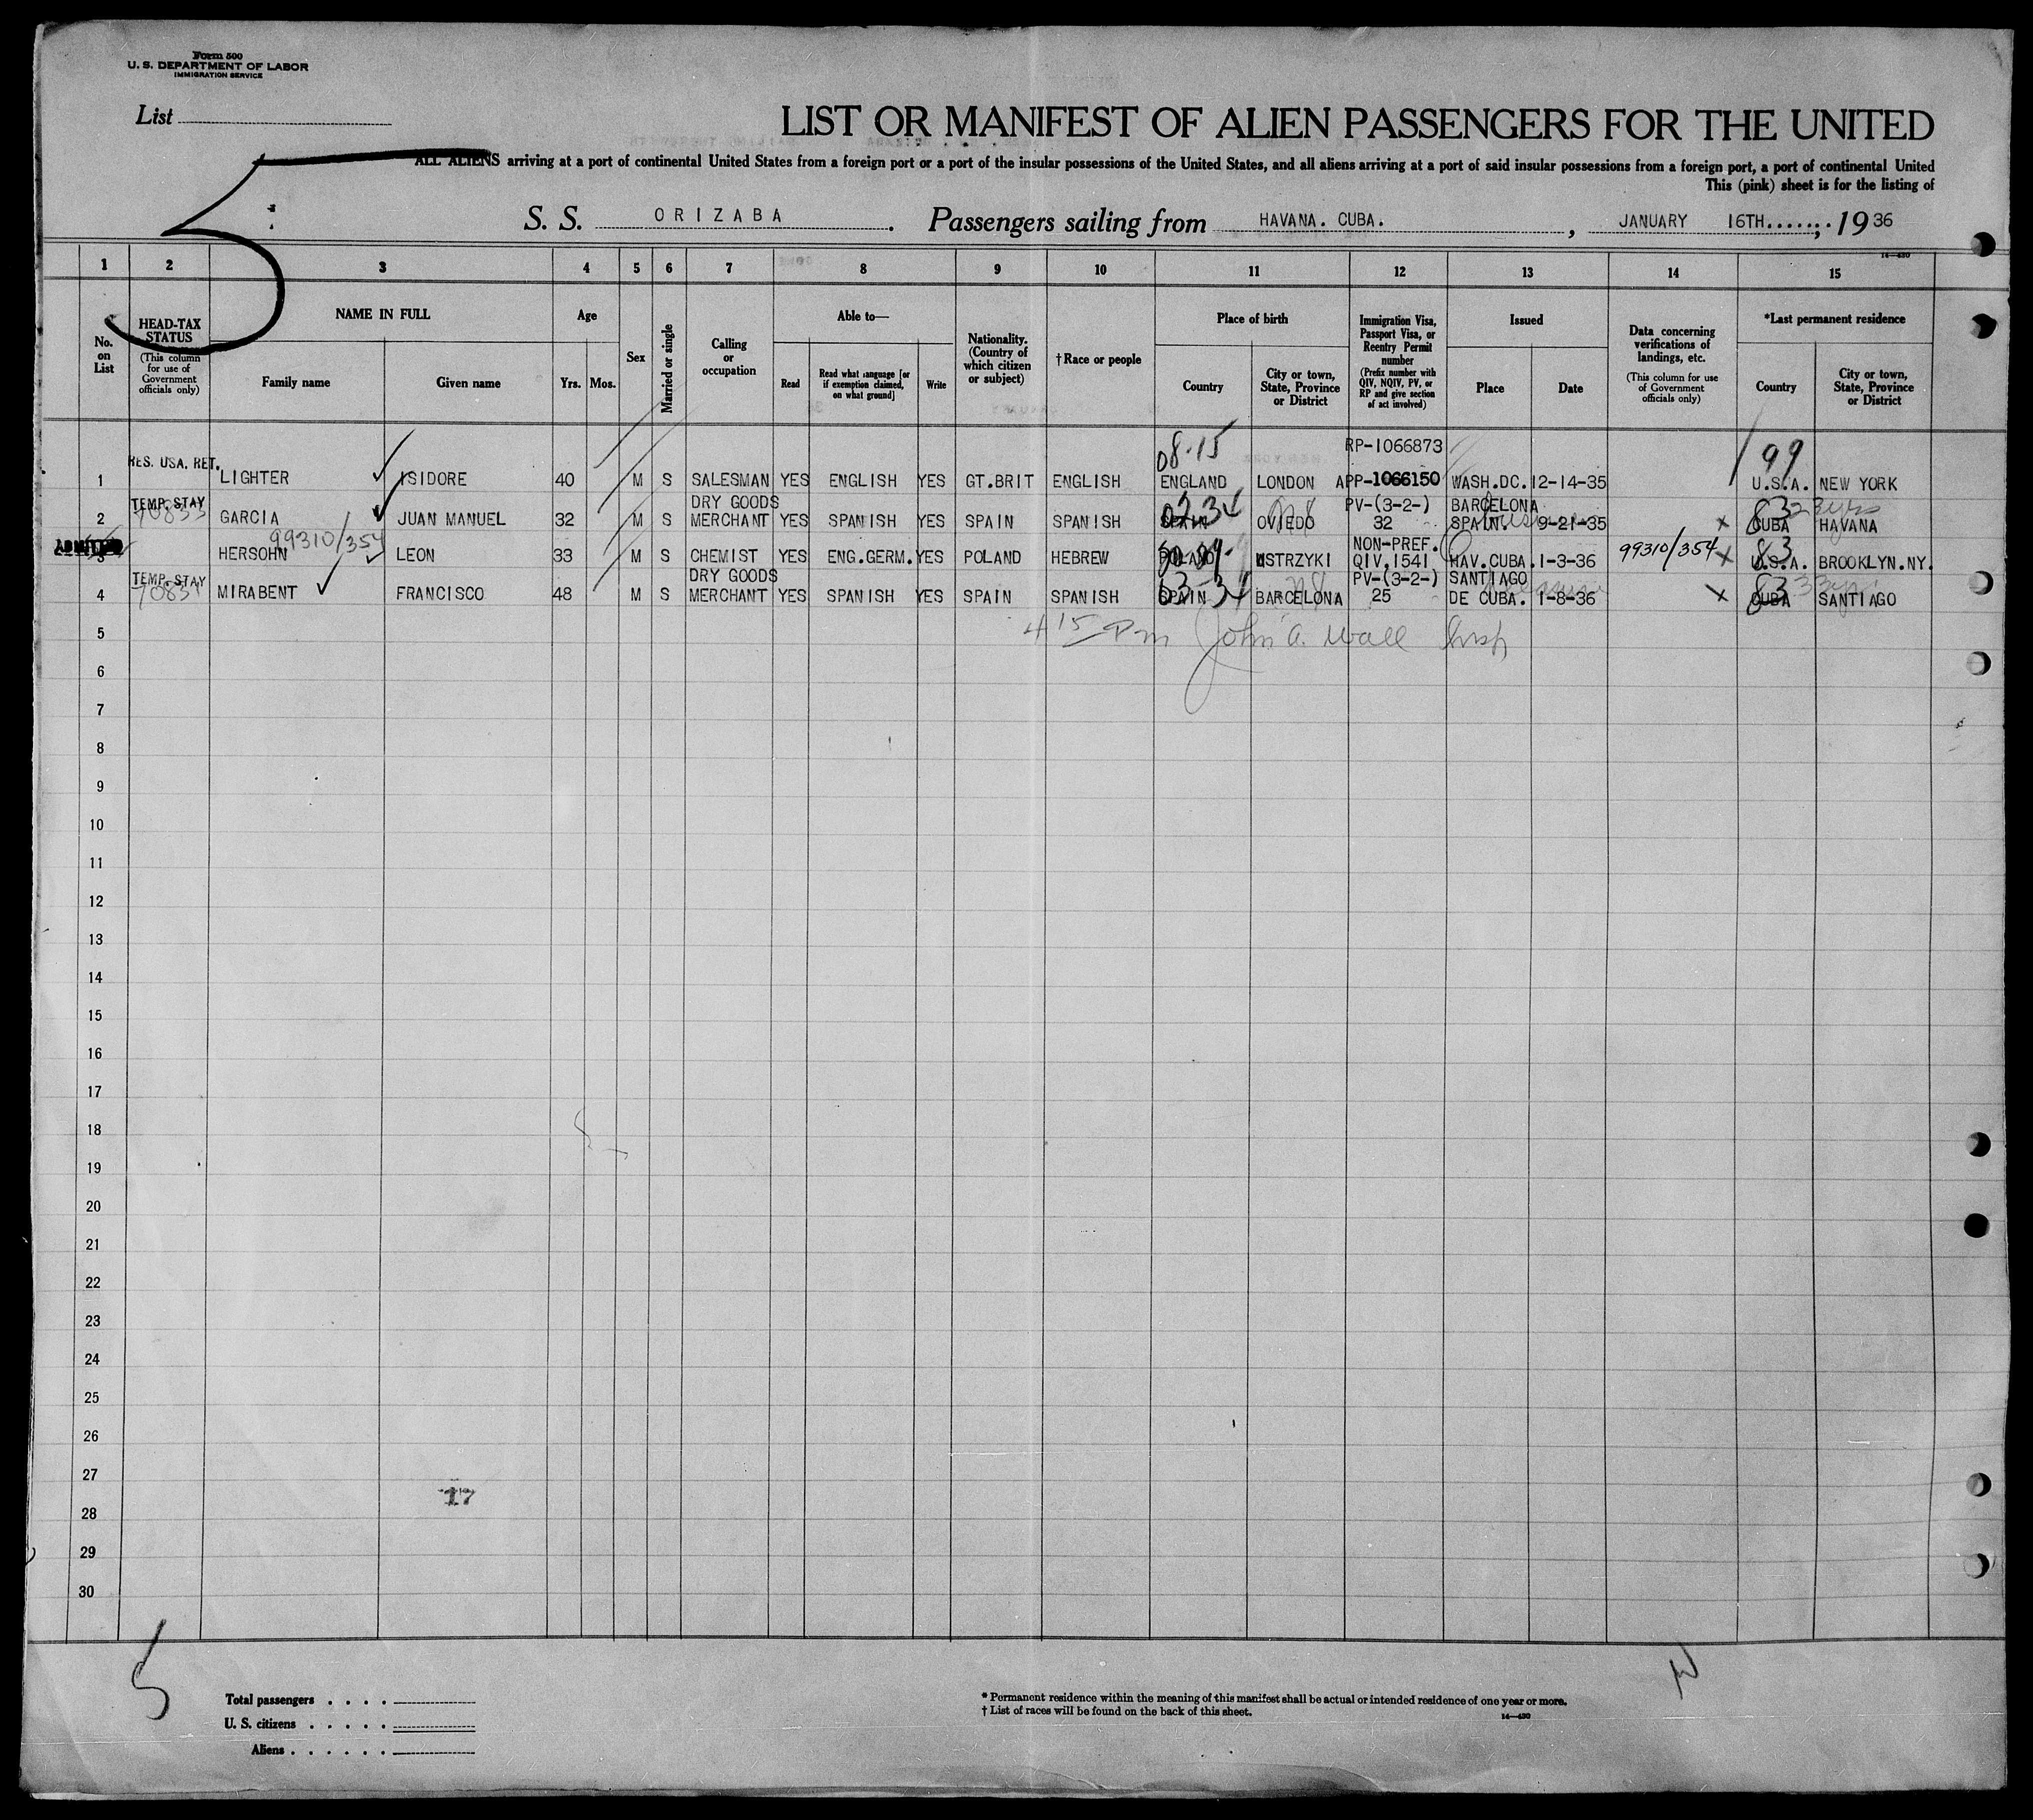 Form 500
U. S. DEPARTMENT OF LABOR
IMMIGRATION SERVICE
List
LIST OR MANIFEST OF ALIEN PASSENGERS FOR THE UNITED
ALL ALIENS arriving at a port of continental United States from a foreign port or a port of the insular possessions of the United States, and all aliens arriving at a port of said insular possessions from a foreign port, a port of continental United
This (pink) sheet is for the listing of
5
S. S. ORIZABA. Passengers sailing from HAVANA. CUBA. , JANUARY 16TH......, 1936
14—430
1 2 3 4 5 6 7 8 9 10 11 12 13 14 15
No. on List
HEAD-TAX STATUS (This column for use of Government officials only)
NAME IN FULL
Family name Given name
Age
Yrs. Mos.
Sex
Married or single
Calling or occupation
Able to—
Read
Read what language [or if exemption claimed, on what ground]
Write
Nationality. (Country of which citizen or subject)
† Race or people
Place of birth
Country
City or town, State, Province or District
Immigration Visa, Passport Visa, or Reentry Permit number (Prefix number with QIV, NQIV, PV, or RP and give section of act involved)
Issued
Place Date
Data concerning verifications of landings, etc. (This column for use of Government officials only)
*Last permanent residence
Country
City or town, State, Province or District
08-15 RP-1066873 99
RES. USA. RET.
1 LIGHTER ISIDORE 40 M S SALESMAN YES ENGLISH YES GT.BRIT ENGLISH ENGLAND LONDON APP-1066150 WASH.DC. 12-14-35 U.S.A. NEW YORK
TEMP. STAY DRY GOODS PV-(3-2-) BARCELONA
2 GARCIA JUAN MANUEL 32 M S MERCHANT YES SPANISH YES SPAIN SPANISH SPAIN OVIEDO 32 SPAIN. 9-21-35 CUBA HAVANA
99310/354 NON-PREF. 83
3 HERSOHN LEON 33 M S CHEMIST YES ENG.GERM. YES POLAND HEBREW POLAND USTRZYKI QIV.1541 HAV.CUBA. 1-3-36 99310/354 U.S.A. BROOKLYN.NY.
TEMP. STAY DRY GOODS 63-34 PV-(3-2-) SANTIAGO 83
4 MIRABENT FRANCISCO 48 M S MERCHANT YES SPANISH YES SPAIN SPANISH SPAIN BARCELONA 25 DE CUBA. 1-8-36 CUBA SANTIAGO
5 4 15 Pm John A. Wall Insp
6
7
8
9
10
11
12
13
14
15
16
17
18
19
20
21
22
23
24
25
26
27
17
28
29
30
5
Total passengers . . . .
U. S. citizens . . . . .
Aliens . . . . . .
* Permanent residence within the meaning of this manifest shall be actual or intended residence of one year or more.
† List of races will be found on the back of this sheet.
14—430